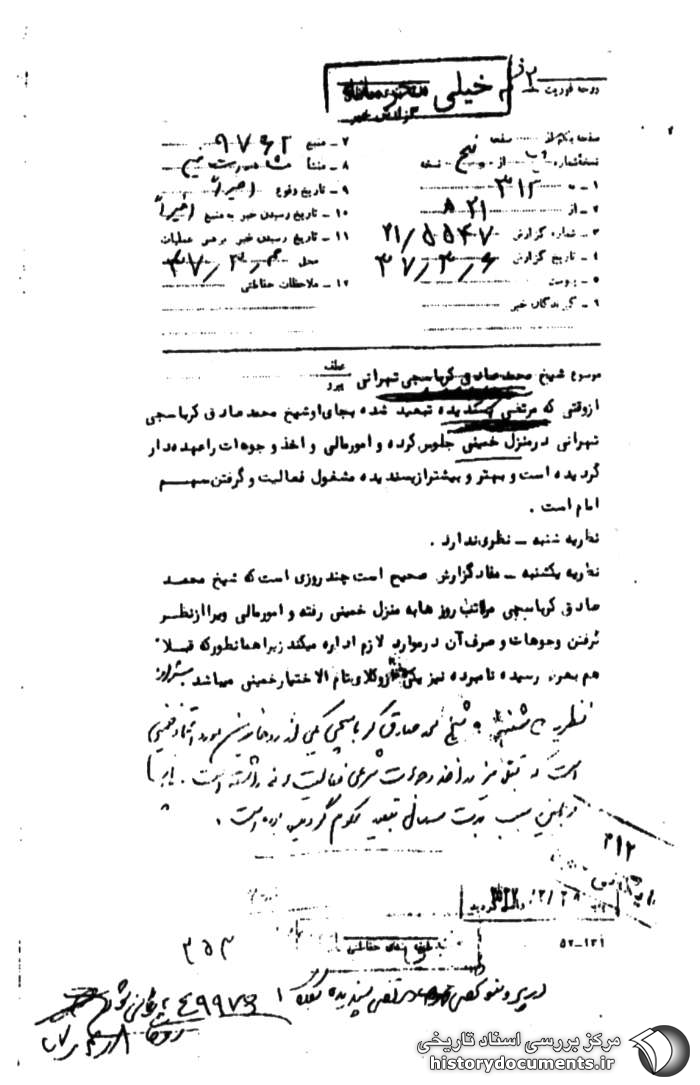 خیلی محرمانه
گزارش خبر
درجه فوریت
صفحه یکم از صفحه
نسخه شماره از پنج نسخه
۱ - به ۳۱۲
۲ - از ۲۱ ه
۳ - شماره گزارش ۲۱/۵۵۴۷
۴ - تاریخ گزارش ۴۷/۳/۶
۵ - پیوست
۶ - گیرندگان خبر
۷ - منبع ۹۷۶۲
۸ - منشأ
۹ - تاریخ وقوع اخیراً
۱۰ - تاریخ رسیدن خبر به منبع اخیراً
۱۱ - تاریخ رسیدن خبر برهبر عملیات
محل ۴۷/۳/
۱۲ - ملاحظات حفاظتی
موضوع شیخ محمدصادق کرباسچی تهرانی عطف پیرو
ازوقتی که مرتضی پسندیده تبعید شده بجای اوشیخ محمدصادق کرباسچی
تهرانی درمنزل خمینی جلوس کرده و امورمالی و اخذ وجوهات راعهده دار
گردیده است و بهتر و بیشترازپسندیده مشغول فعالیت و گرفتن سهم
امام است .
نظریه شنبه - نظری ندارد .
نظریه یکشنبه - مفاد گزارش صحیح است چند روزی است که شیخ محمد
صادق کرباسچی مراتب روزها به منزل خمینی رفته و امورمالی ویرا ازنظر
گرفتن وجوهات و صرف آن درموارد لازم اداره میکند زیرا همانطورکه قبلا
هم بعرض رسیده نامبرده نیز یکی ازوکلای تام الاختیارخمینی میباشد
نظریه شنبه شیخ محمد صادق کرباسچی یکی از روحانیون مورد اعتماد خمینی
است که قبلا نیز در اخذ وجوهات شرعی فعالیت داشته است .
و بهمین سبب بمدت سال تبعید محکوم گردیده بوده است .
۳۱۲
بایگانی
طبقه بندی حفاظتی
۵۲-۱۲۱
۳۵۳
در پرونده مرتضی پسندیده کلاسه ۴۹۹۷۶ بایگانی شود
مرکز بررسی اسناد تاریخی
historydocuments.ir